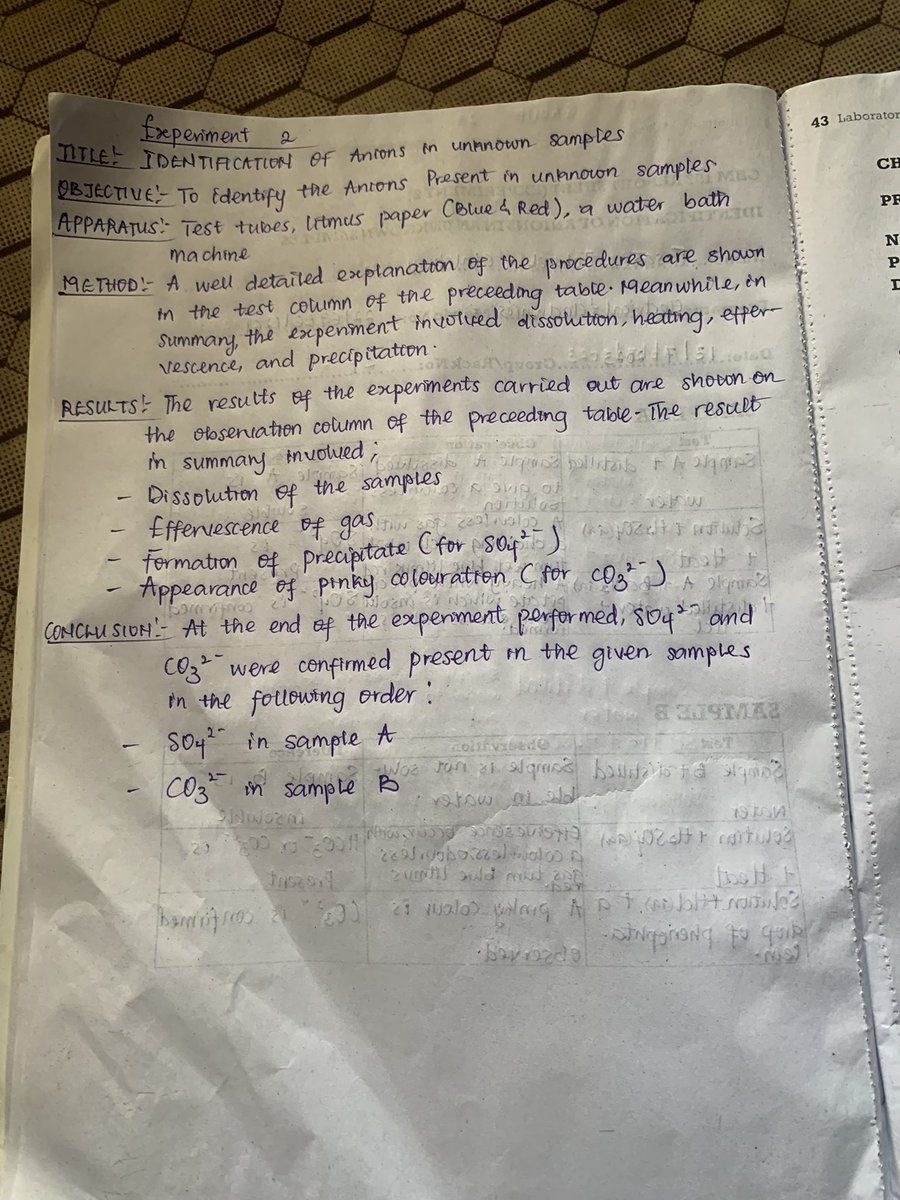 Experiment 2
TITLE:- IDENTIFICATION OF Anions in unknown samples
OBJECTIVE:- To identify the Anions Present in unknown samples
APPARATUS:- Test tubes, litmus paper (Blue & Red), a water bath
machine
METHOD:- A well detailed explanation of the procedures are shown
in the test column of the preceeding table. Meanwhile, in
summary, the experiment involved dissolution, heating, effer-
vescence, and precipitation.
RESULTS:- The results of the experiments carried out are shown on
the observation column of the preceeding table. The result
in summary involved;
- Dissolution of the samples
- Effervescence of gas
- Formation of precipitate (for SO4²⁻)
- Appearance of pinky colouration (for CO3²⁻)
CONCLUSION:- At the end of the experiment performed, SO4²⁻ and
CO3²⁻ were confirmed present in the given samples
in the following order:
- SO4²⁻ in sample A
- CO3²⁻ in sample B
43 Laborator
CH
PR
N
P